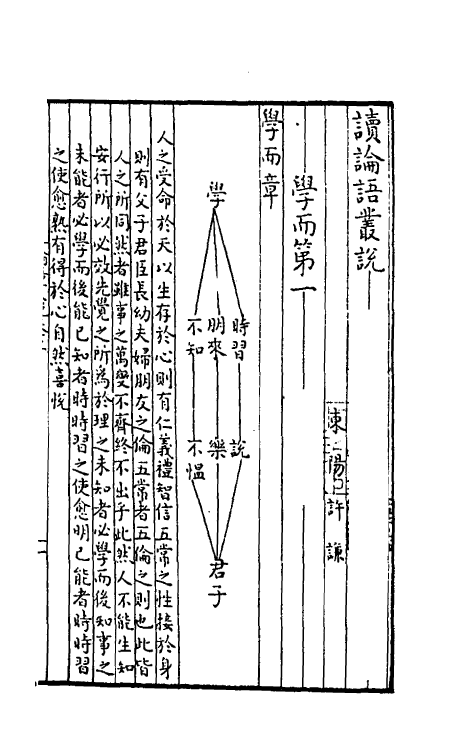 讀論語叢說
東陽 許 謙
學而第一
學而章
學
時習 說
朋來 樂
不知 不慍
君子
人之受命於天以生存於心則有仁義禮智信五常之性接於身
則有父子君臣長幼夫婦朋友之倫五常者五倫之則也此皆
人之所同然者雖事之萬變不齊終不出乎此然人不能生知
安行所以必效先覺之所為於理之未知者必學而後知事之
未能者必學而後能已知者時時習之使愈明已能者時時習
之使愈熟有得於心自然喜悅